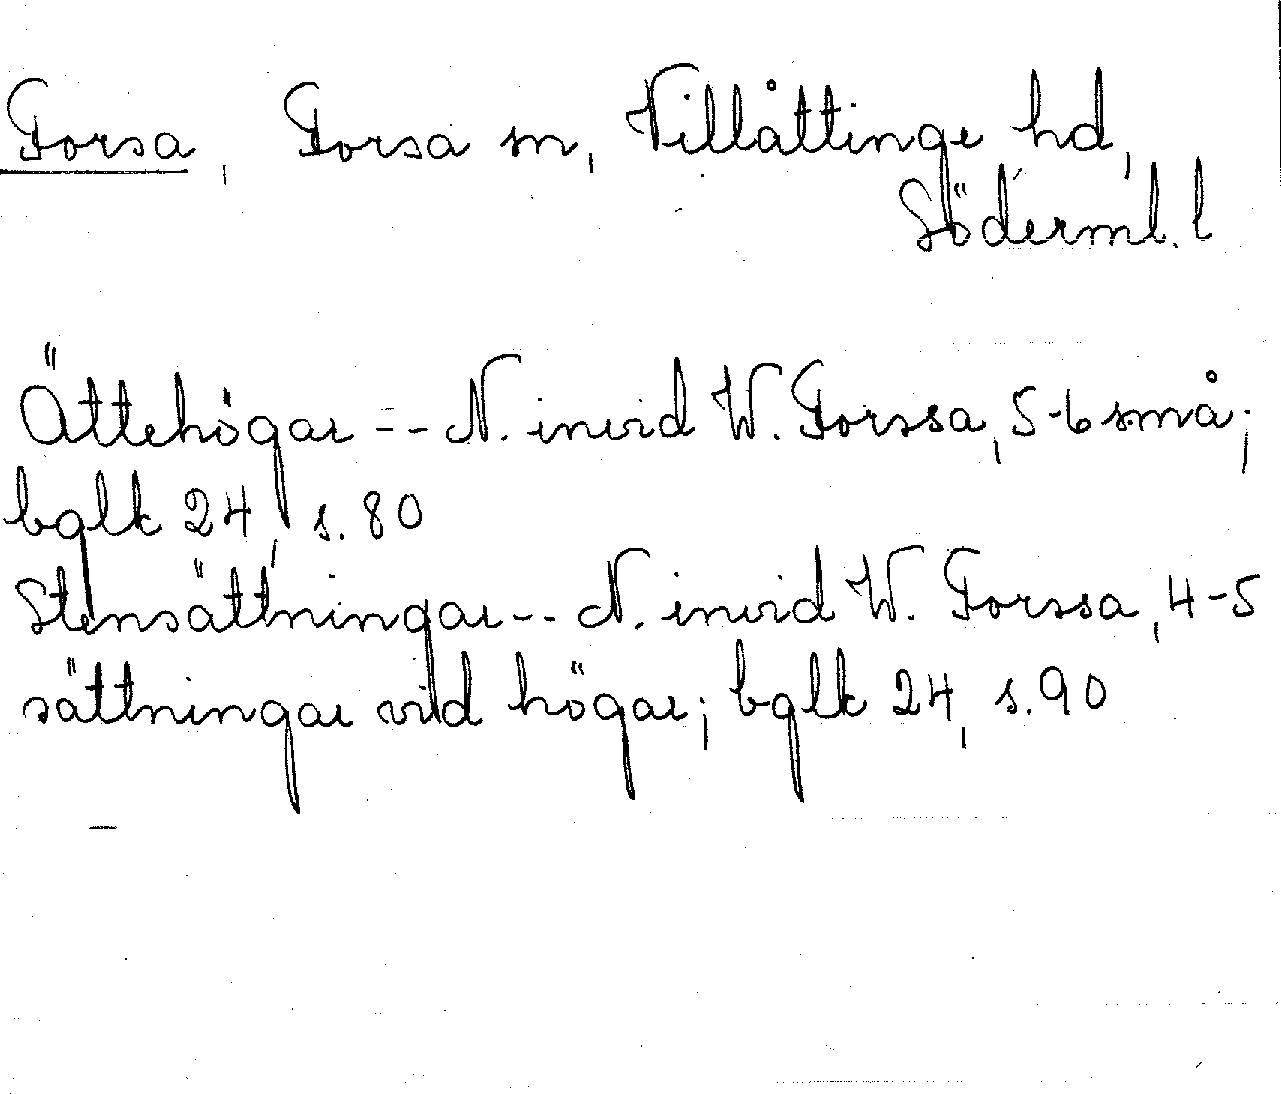 Forsa, Forsa sn, Villåttinge hd,
Söderml. l
Ättehögar -- N. invid W. Forssa, 5-6 små;
bglk 24, s. 80
Stensättningar -- N. invid W. Forssa, 4-5
sättningar vid högar; bglk 24, s. 90